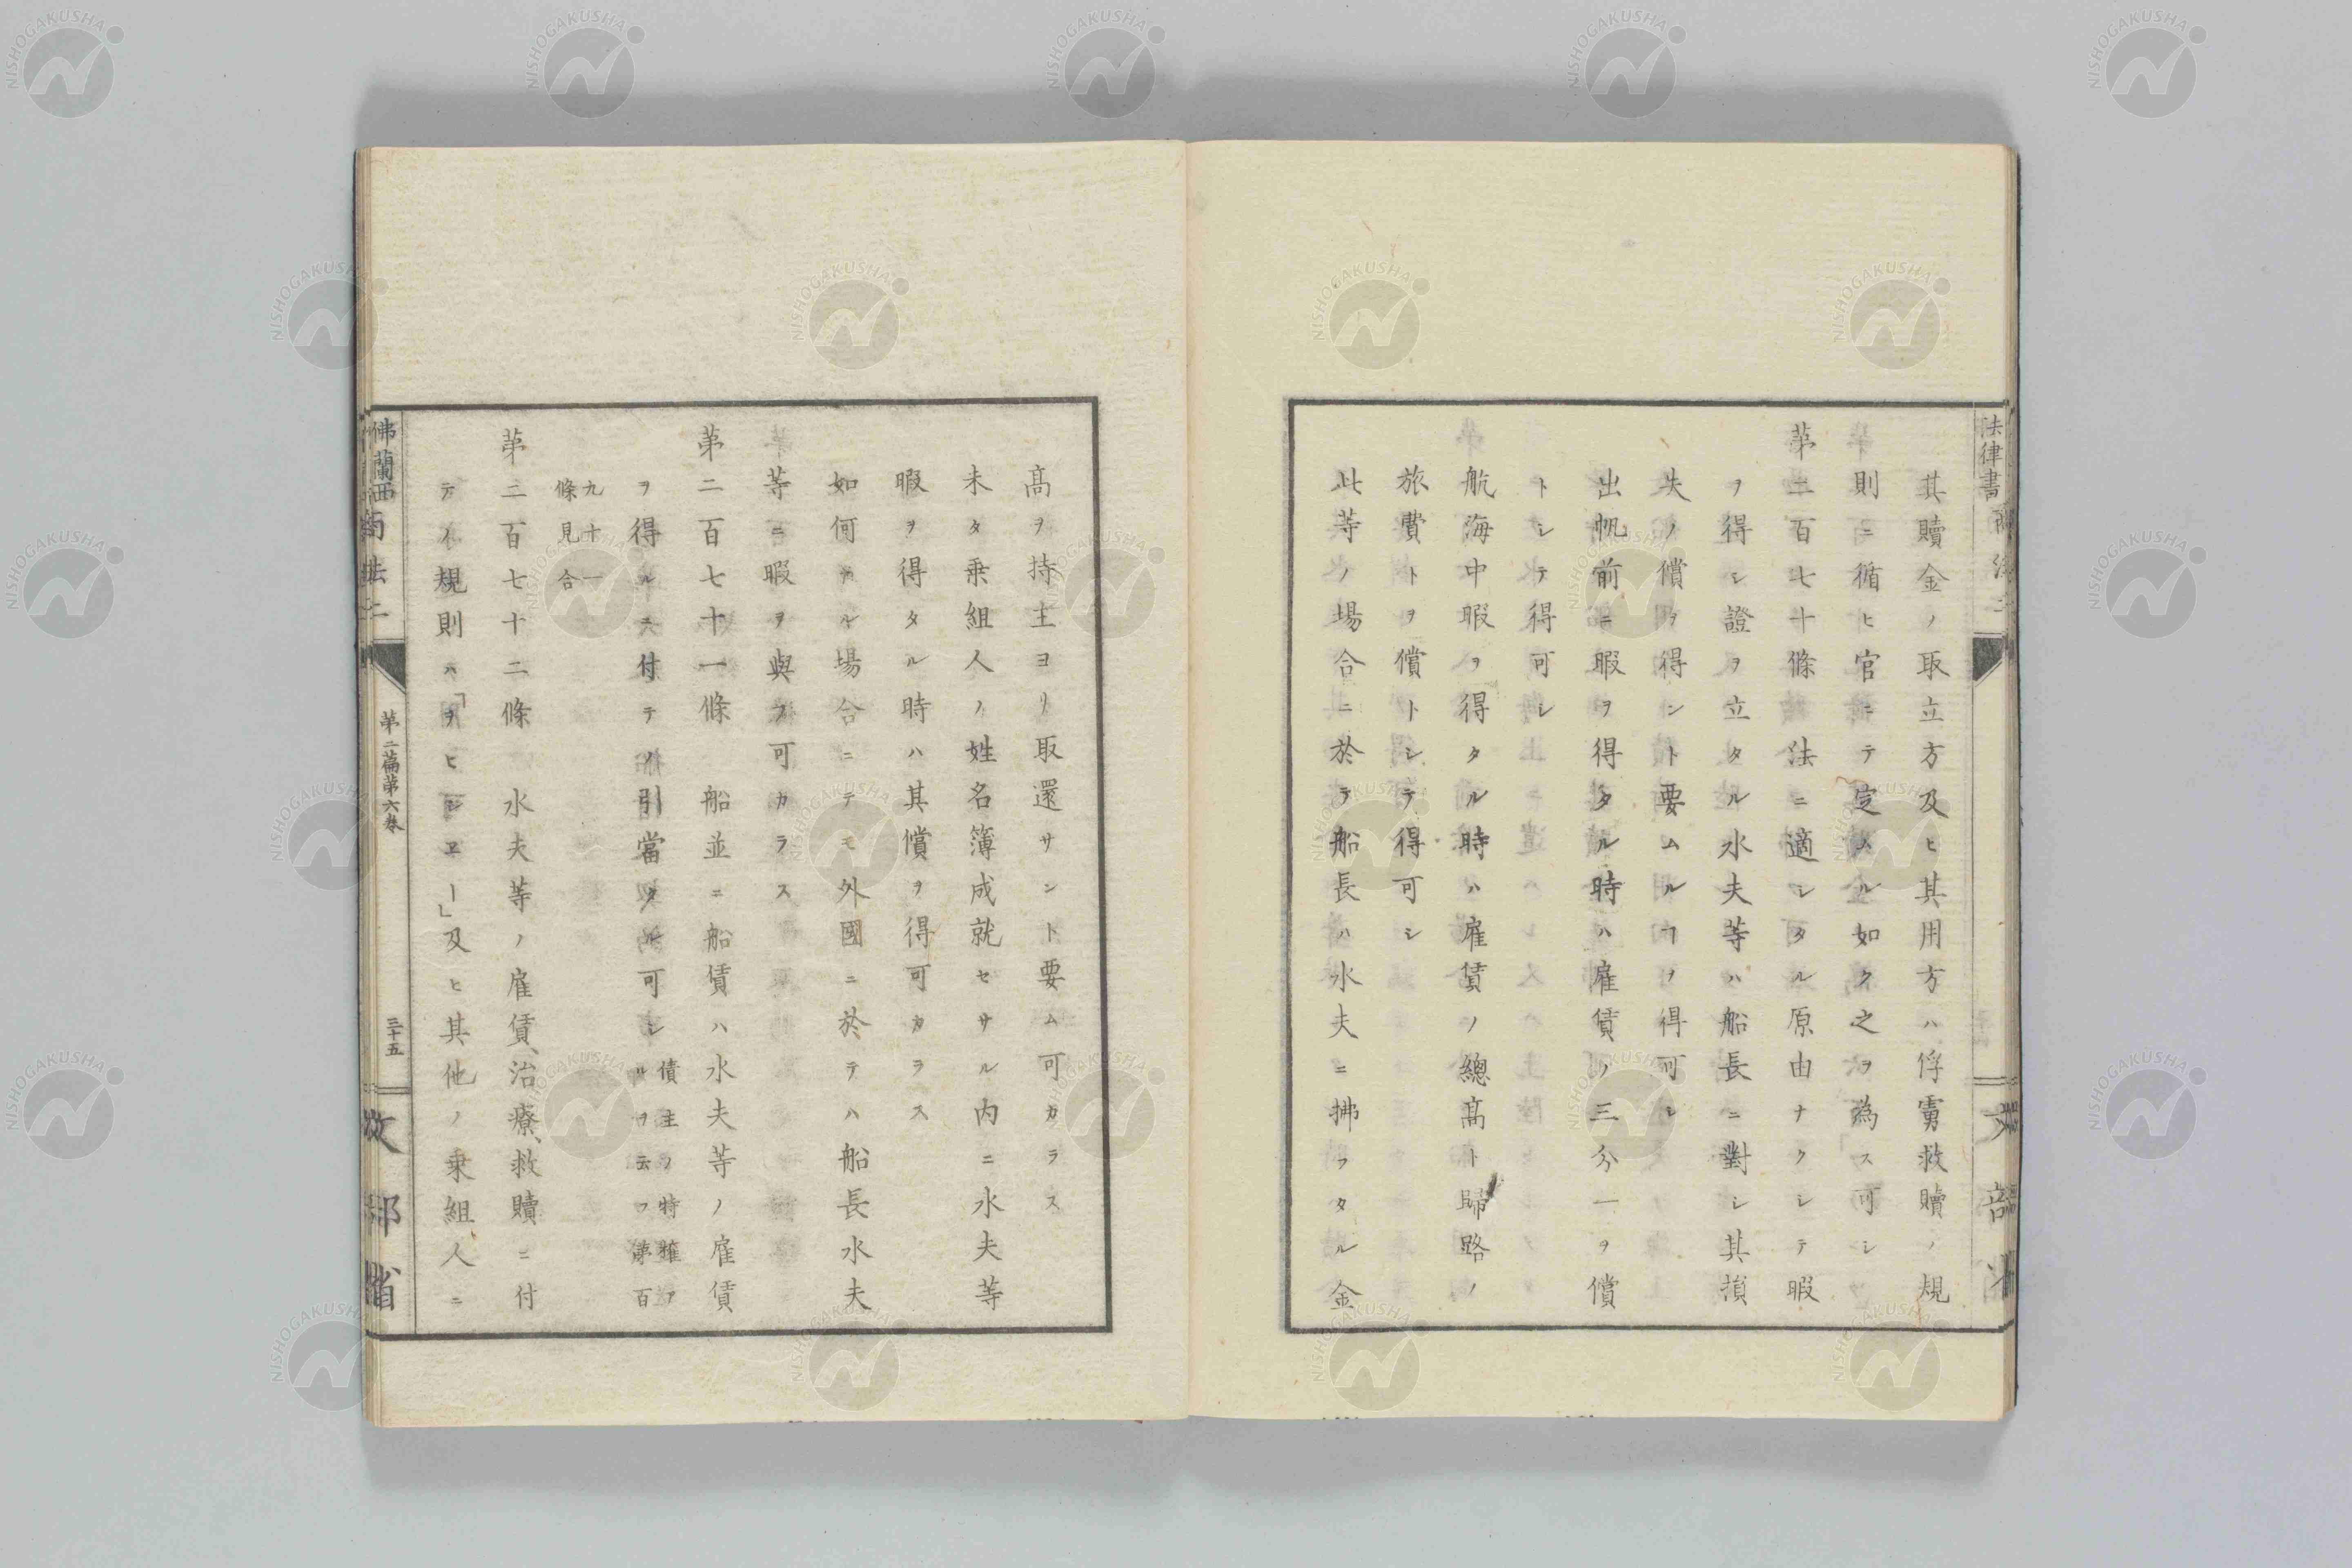 法律書
其贖金ノ取立方及ヒ其用方ハ俘虜救贖ノ規
則ニ循ヒ官ニテ定ムル如ク之ヲ為ス可シ
第二百七十條 法ニ適シタル原由ナクシテ暇
ヲ得シ證ヲ立タル水夫等ハ船長ニ對シ其損
失ノ償ヲ得ント要ムルヿヲ得可シ
出帆前ニ暇ヲ得タル時ハ雇賃ノ三分一ヲ償
トシテ得可シ
航海中暇ヲ得タル時ハ雇賃ノ總高ト歸路ノ
旅費トヲ償トシテ得可シ
此等ノ場合ニ於テ船長ハ水夫ニ拂フタル金
高ヲ持主ヨリ取還サント要ム可カラス
未タ乗組人ノ姓名簿成就セサル内ニ水夫等
暇ヲ得タル時ハ其償ヲ得可カラス
如何ナル場合ニテモ外國ニ於テハ船長水夫
等ニ暇ヲ與フ可カラス
第二百七十一條 船並ニ船賃ハ水夫等ノ雇賃
ヲ得ルニ付テノ引當タル可シ 債主ノ特權アルヲ云フ第百
九十一條見合
第二百七十二條 水夫等ノ雇賃、治療、救贖ニ付
テノ規則ハ「ヲヒシエー」及ヒ其他ノ乗組人ニ
佛蘭西商法二
第二篇第六巻
三十五
文部省